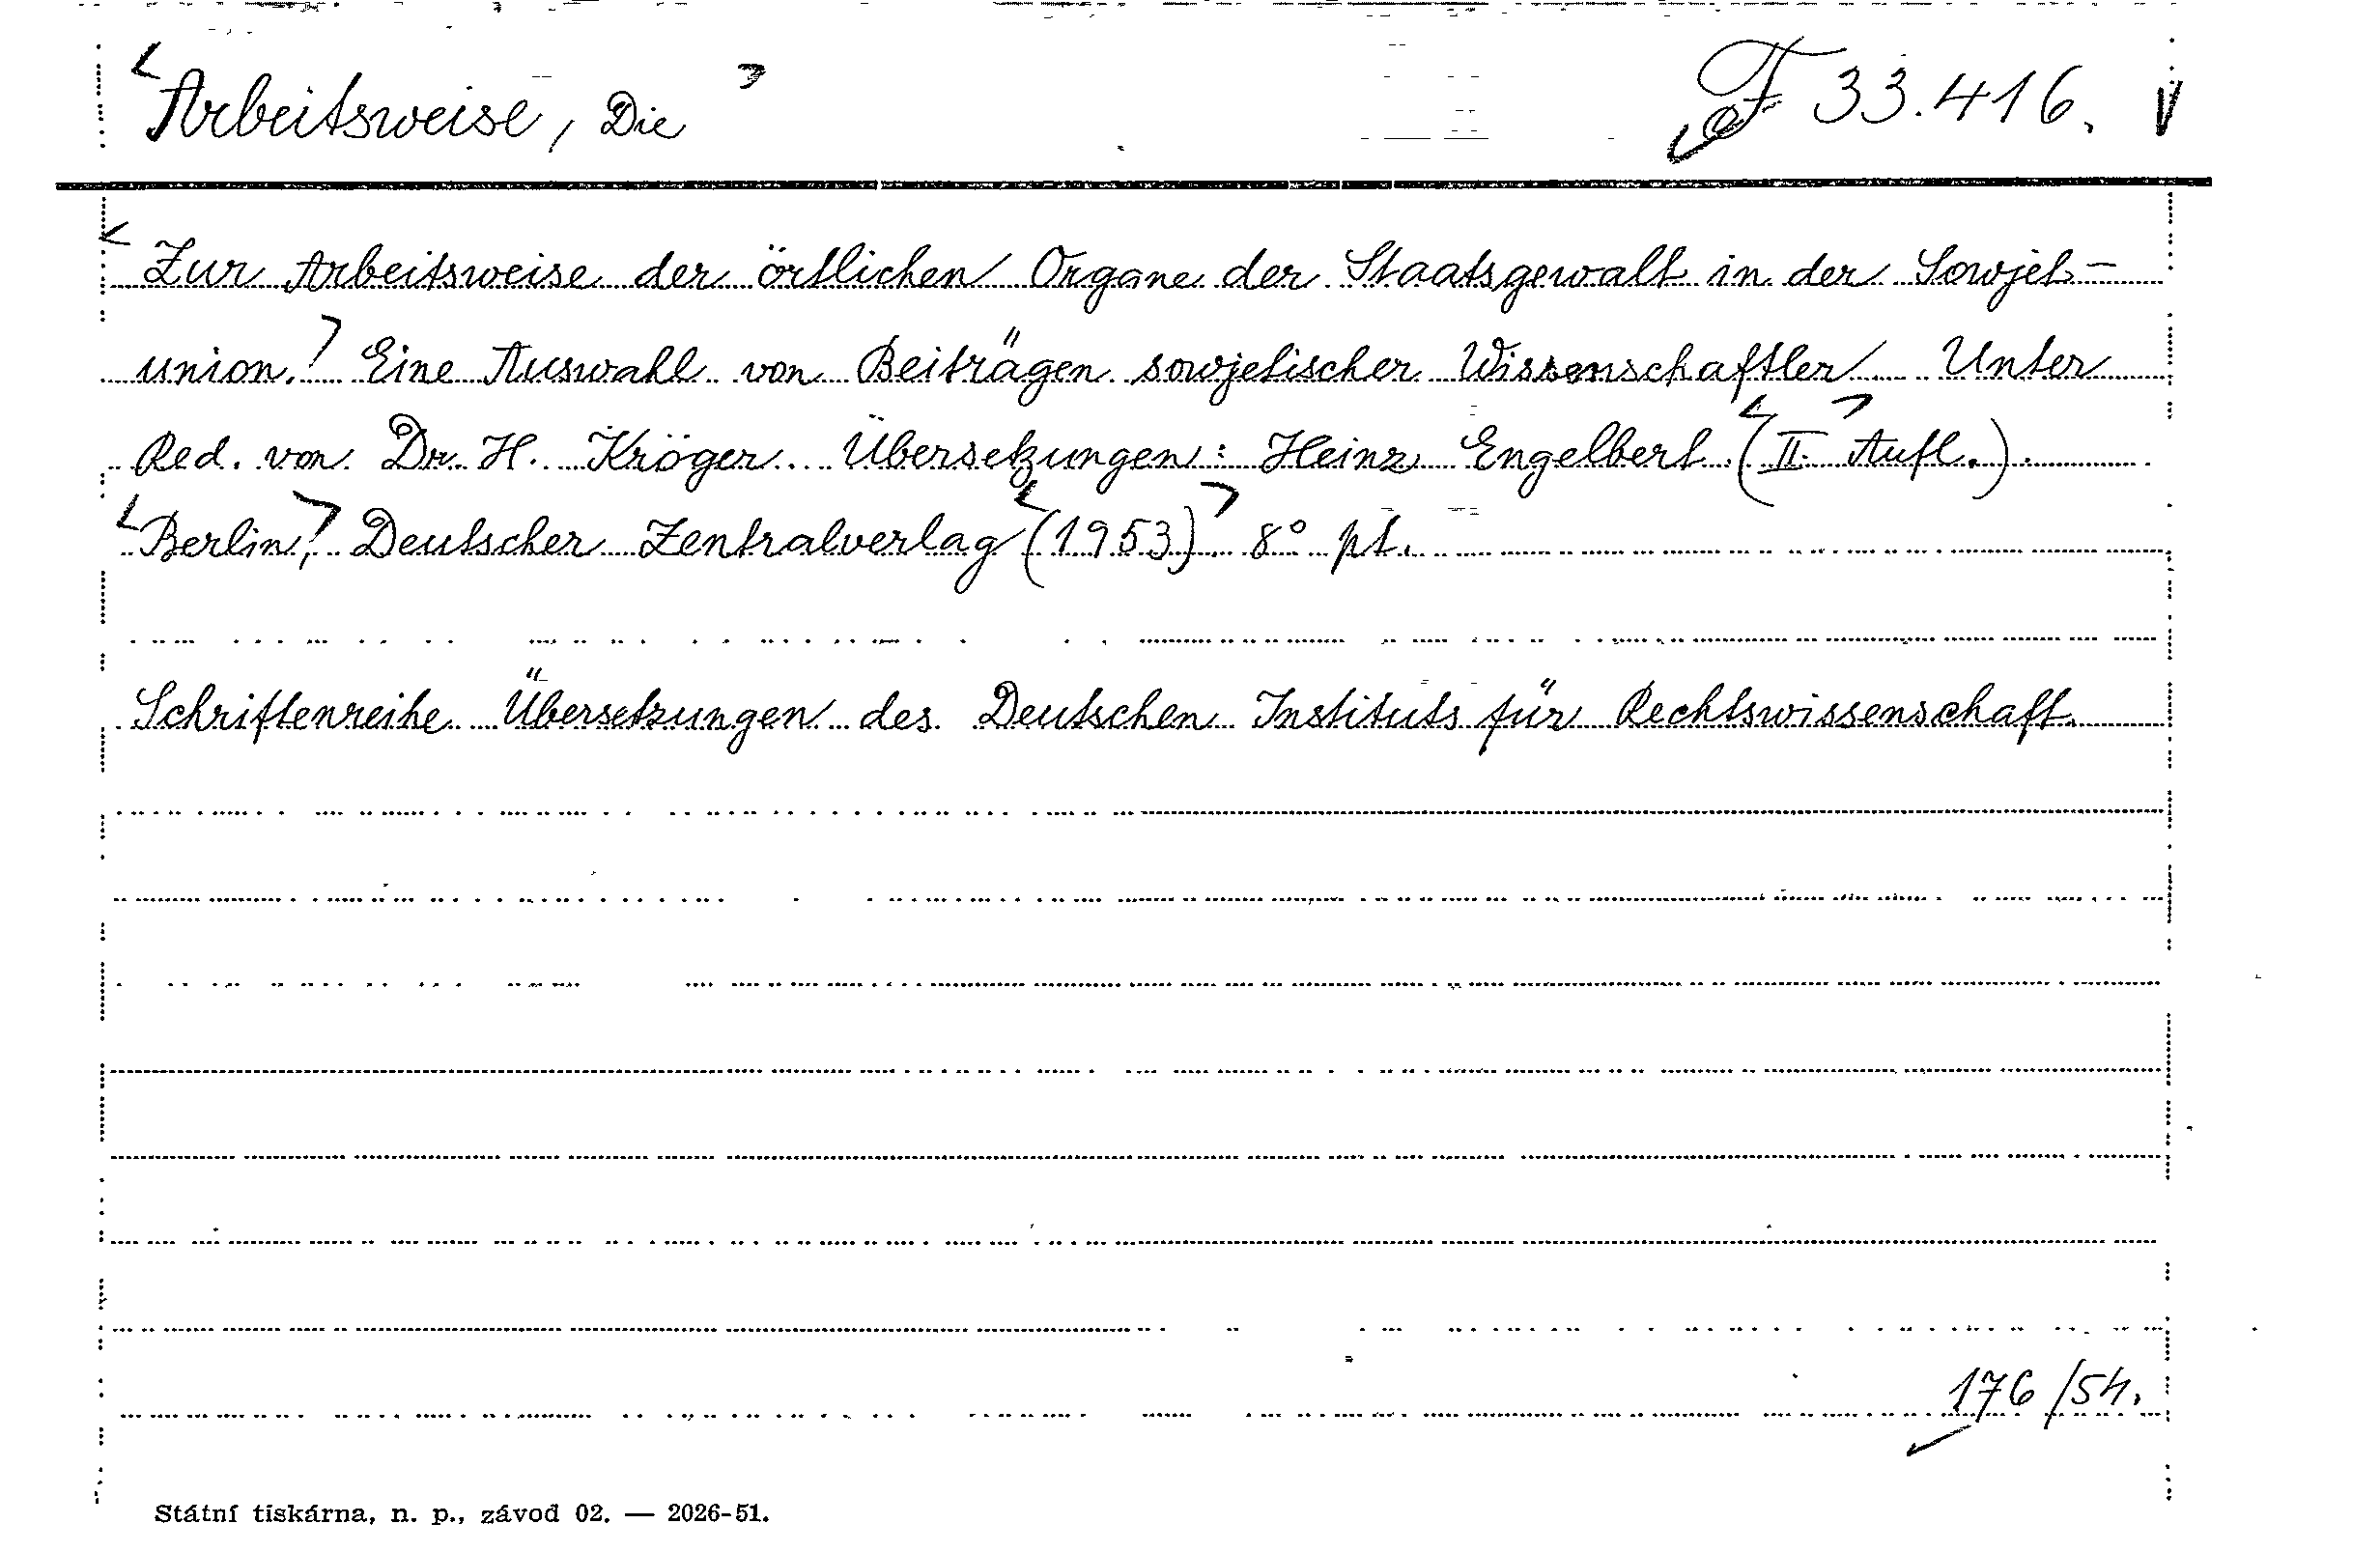 Arbeitsweise, Die F 33.416.
Zur Arbeitsweise der örtlichen Organe der Staatsgewalt in der Sowjet-
union. Eine Auswahl von Beiträgen sowjetischer Wissenschaftler. Unter
Red. von Dr. H. Kröger. Übersetzungen: Heinz Engelbert. (II. Aufl.).
Berlin, Deutscher Zentralverlag (1953). 8° pt.
Schriftenreihe Übersetzungen des Deutschen Instituts für Rechtswissenschaft.
176/54.
Státní tiskárna, n. p., závod 02. — 2026-51.